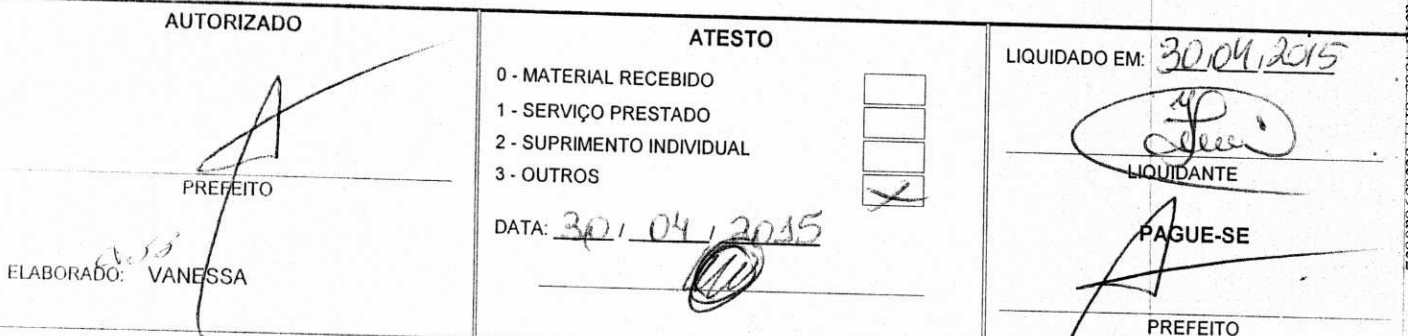 AUTORIZADO
PREFEITO
ELABORADO: VANESSA
ATESTO
0 - MATERIAL RECEBIDO
1 - SERVIÇO PRESTADO
2 - SUPRIMENTO INDIVIDUAL
3 - OUTROS X
DATA: 30 / 04 / 2015
LIQUIDADO EM: 30/04/2015
LIQUIDANTE
PAGUE-SE
PREFEITO